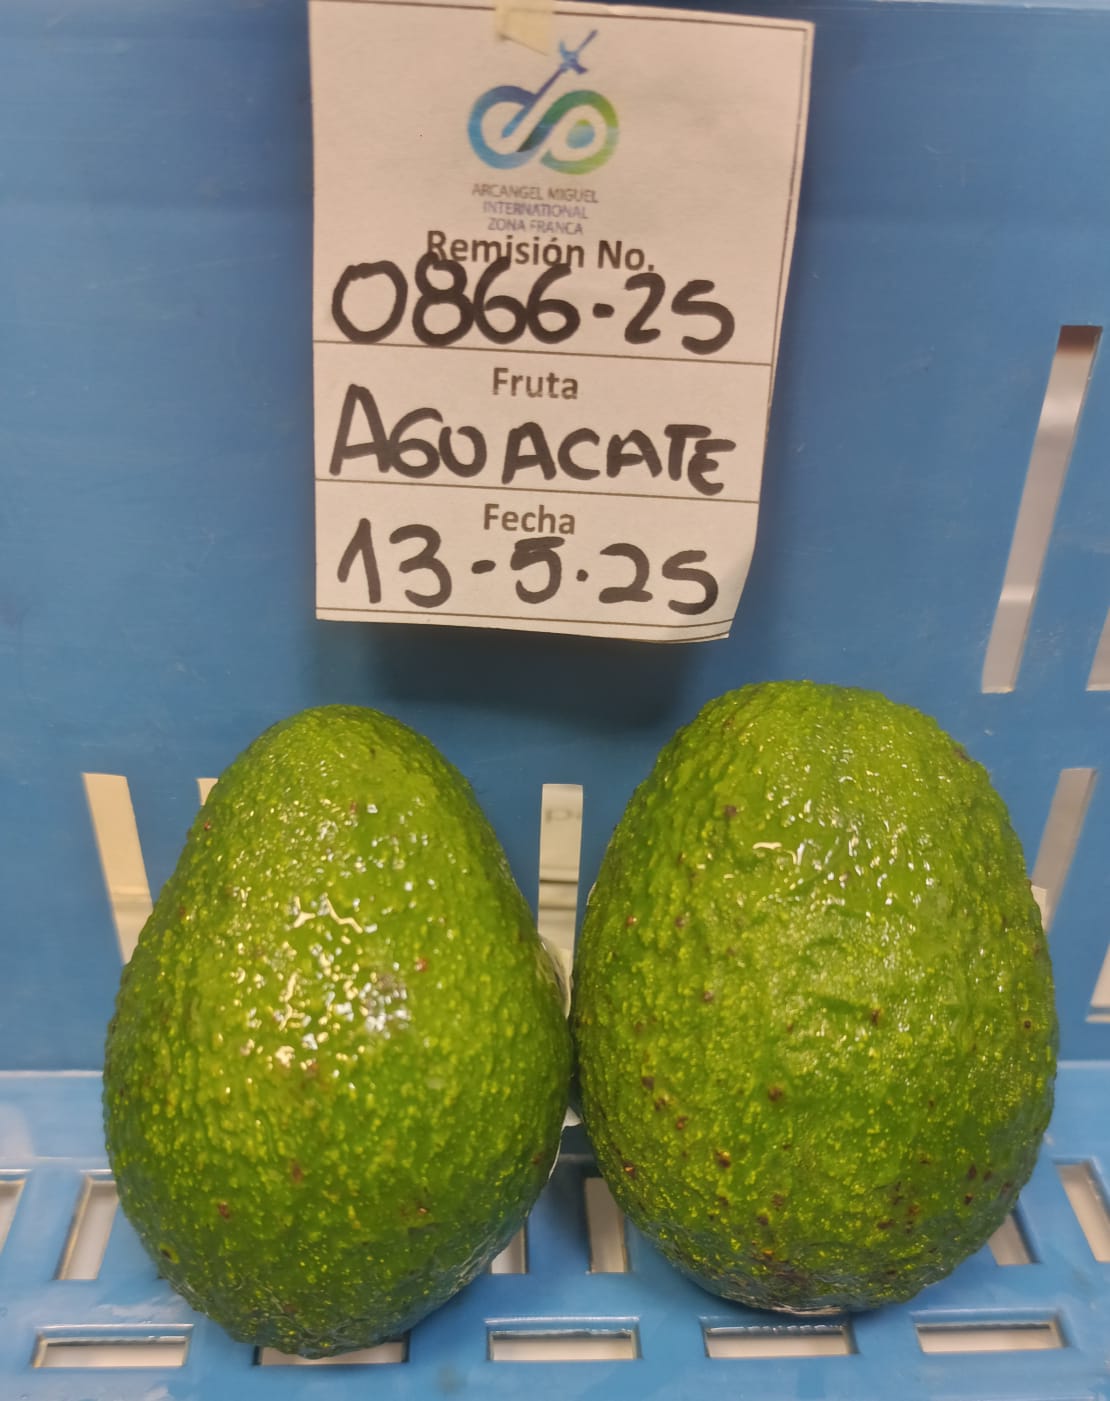 ARCANGEL MIGUEL
INTERNATIONAL
ZONA FRANCA
Remisión No.
0866-25
Fruta
AGUACATE
Fecha
13-5.25